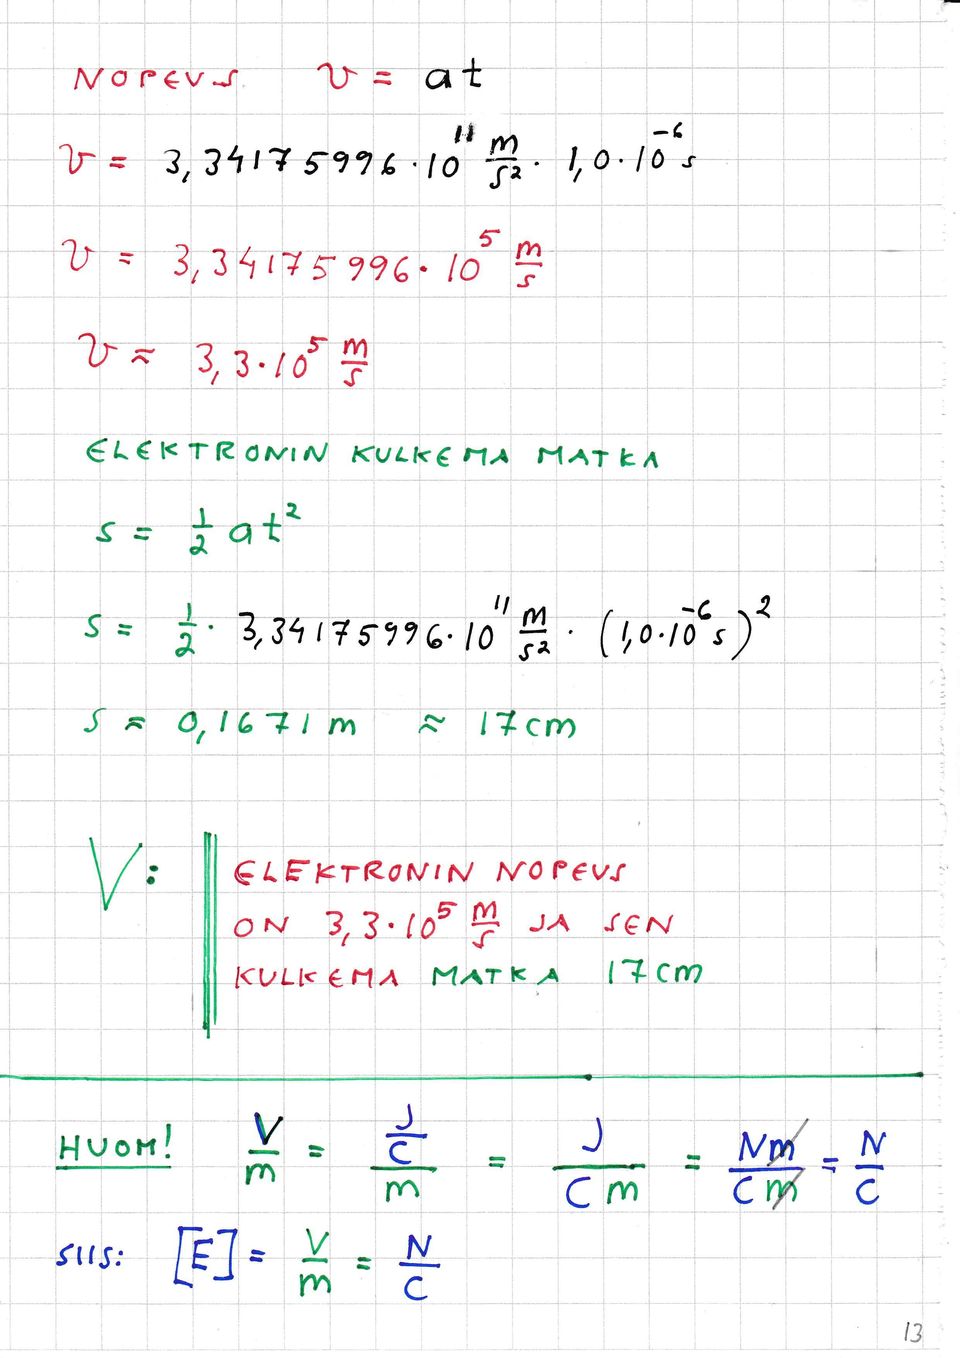 NOPEUS v = at
v = 3,34175996·10¹¹ m/s² · 1,0·10⁻⁶ s
v = 3,34175996·10⁵ m/s
v ≈ 3,3·10⁵ m/s
ELEKTRONIN KULKEMA MATKA
s = 1/2 at²
s = 1/2 · 3,34175996·10¹¹ m/s² · (1,0·10⁻⁶ s)²
s ≈ 0,1671 m ≈ 17 cm
V: ELEKTRONIN NOPEUS
ON 3,3·10⁵ m/s JA SEN
KULKEMA MATKA 17 cm
HUOM! V/m = (J/C)/m = J/(C m) = Nm/(C m) = N/C
SIIS: [E] = V/m = N/C
13